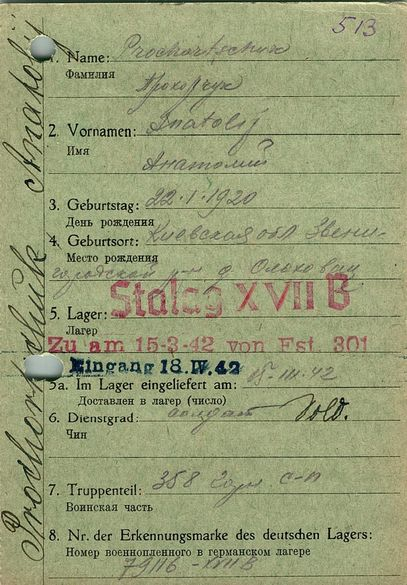 513
1. Name: Prochortschuk
Фамилия
Прохорчук
2. Vornamen: Anatolij
Имя
Анатолий
3. Geburtstag: 22.1.1920
День рождения
4. Geburtsort: Киевская обл Звени-
Место рождения
городской р-н д. Ольховец
5. Lager: Stalag XVII B
Лагер
Zu am 15-3-42 von Fst. 301
Eingang 18. IV. 42
5a. Im Lager eingeliefert am: 15-III-42
Доставлен в лагер (число)
6. Dienstgrad: солдат Sold.
Чин
7. Truppenteil: 358 с-п
Воинская часть
8. Nr. der Erkennungsmarke des deutschen Lagers:
Номер военнопленного в германском лагере
79116-XVII B
Prochortschuk Anatolij